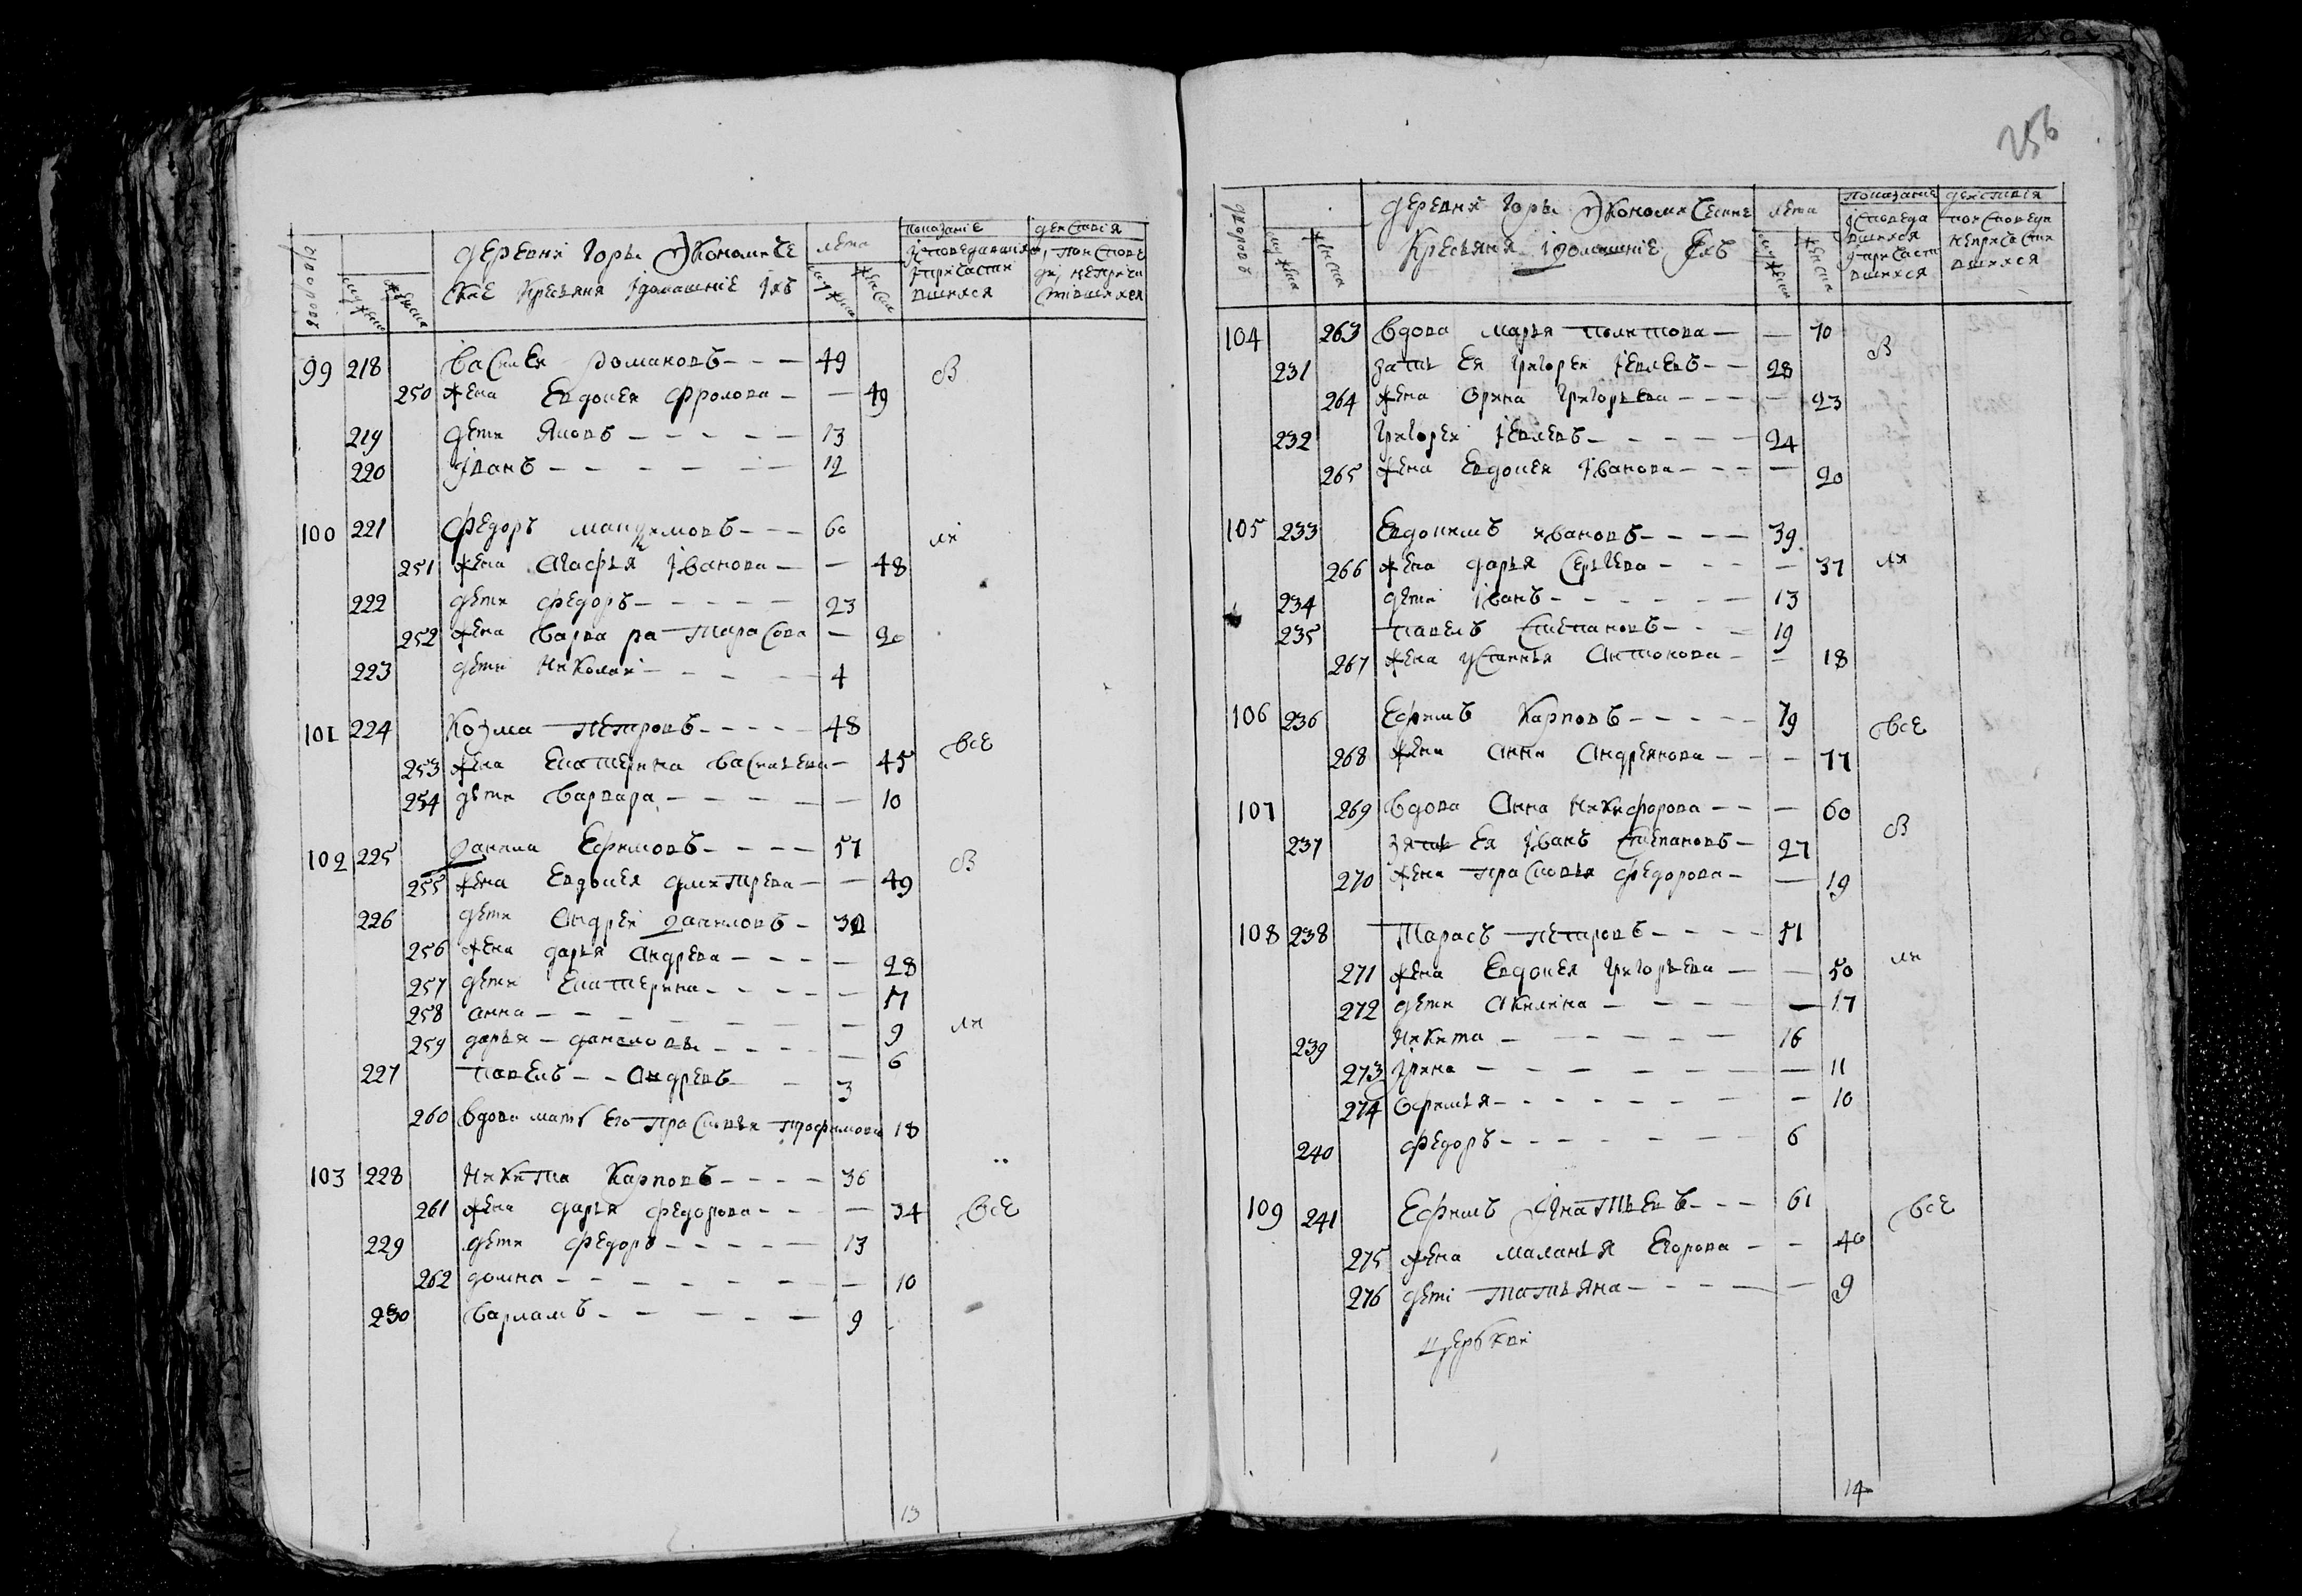 дворовъ
мужеска
женска
деревни Горы Экономиче
ские кресьяня ідомашніе іхъ
лета
мужеска
женска
показаніе
действія
99 218 Василеи Романовъ 49 в
250 жена Евдокея Фролова 49
219 дети Яковъ 13
220 Іванъ 12
100 221 Федоръ Макзимовъ 60 ли
251 жена Агафья Іванова 48
222 дети Федоръ 23
252 жена Варвара Тарасова 20
223 дети Николаи 4
101 224 Козма Петровъ 48 все
253 жена Екатерина Васильева 45
254 дети Варвара 10
102 225 Данила Ефимовъ 57 в
255 жена Евдокея Дмитрева 49
226 дети Андреи Даниловъ 32
256 жена Дарья Андрева 28
257 дети Екатерина 17
258 Анна 9
259 Дарья Даниловы 6 ли
227 Павелъ Андревъ 3
260 вдова мать Его Прасковья Трофимова 18
103 228 Никита Карповъ 36
261 жена Дарья Федорова 34 все
229 дети Федоръ 13
262 Домна 10
230 Варламъ 9
13
256
дворовъ
мужеска
женска
деревни Горы Экономические
Кресьяня ідомашніе Іхъ
лета
мужеска
женска
показание
действия
104 263 вдова Марья Политова 70 в
231 зать Ея Григореи Іевлевъ 28
264 жена Орина Григорьева 23
232 Григореи Іевлевъ 24
265 жена Евдокея Іванова 20
105 233 Евдокимъ Ивановъ 39
266 жена Дарья Сергева 37 ли
234 дети Іванъ 13
235 Павелъ Степановъ 19
267 жена Устинья Антонова 18
106 236 Ефимъ Карповъ 79 все
268 жена Анна Андреянова 77
107 269 вдова Анна Никифорова 60
237 зять Ея Іванъ Степановъ 27 в
270 жена Прасковья Федорова 19
108 238 Тарасъ Петровъ 51
271 жена Евдокея Григорьева 50 ли
272 дети Акилина 17
239 Никита 16
273 Ірина 11
274 Офимья 10
240 Федоръ 6
109 241 Ефимъ Ігнатьевъ 61 все
275 жена Маланья Егорова 40
276 деті Татьяна 9
церькви
14